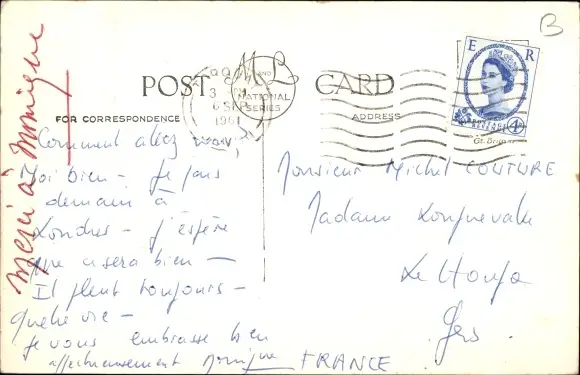 B
POST CARD
M & L
NATIONAL
SERIES
FOR CORRESPONDENCE
ADDRESS
6 SEP
1961
E R
POSTAGE
REVENUE
4D
Gt. Britain
Merci à Monique
Comment allez
vous
Moi bien - Je pars
demain à
Londres - j'espère
que ce sera bien -
Il pleut toujours -
quelle vie -
Je vous embrasse bien
affectueusement Monique
Monsieur Michel COUTURE
Madame
Le Houga
Gers
FRANCE